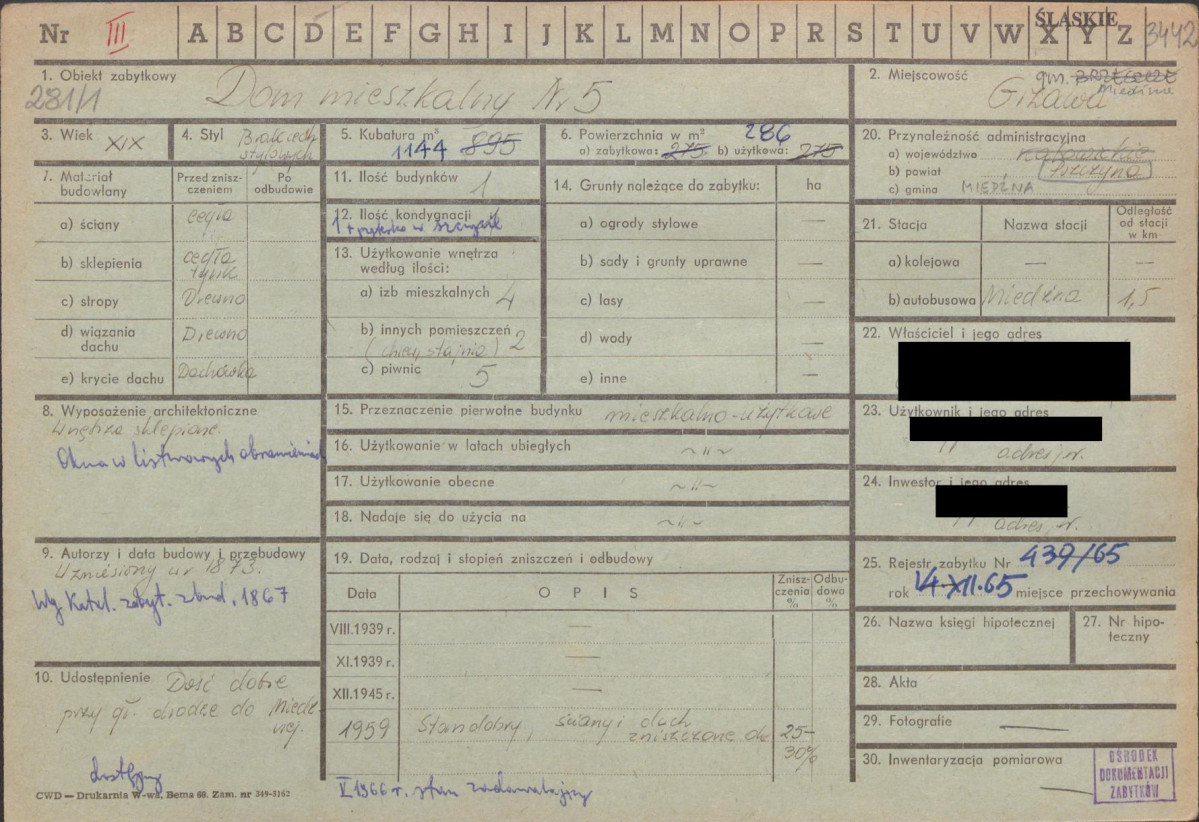 Nr III A B C D E F G H I J K L M N O P R S T U V W X Y Z 3442
ŚLĄSKIE
1. Obiekt zabytkowy
281/1 Dom mieszkalny Nr 5
2. Miejscowość gm. Miedźna
Giława
3. Wiek XIX
4. Styl Brak cech stylowych
5. Kubatura m³ 1144 895
6. Powierzchnia w m² 286
a) zabytkowa: 275 b) użytkowa: 275
7. Materiał budowlany
Przed zniszczeniem
Po odbudowie
a) ściany cegła
b) sklepienia cegła tynk
c) stropy Drewno
d) wiązania dachu Drewno
e) krycie dachu Dachówka
8. Wyposażenie architektoniczne
Wnętrza sklepione.
Okna w listwowych obramieniach
9. Autorzy i data budowy i przebudowy
Wzniesiony w r 1873.
Wg Katal. zabyt. zbud. 1867
10. Udostępnienie Dość dobre
przy gł. drodze do Miedź-
nej.
dostępny
CWD — Drukarnia W-wa, Bema 60. Zam. nr 349-5162
11. Ilość budynków 1
12. Ilość kondygnacji
1 + piętro w szczycie
13. Użytkowanie wnętrza
według ilości:
a) izb mieszkalnych 4
b) innych pomieszczeń 2
(chlew, stajnia)
c) piwnic 5
14. Grunty należące do zabytku: ha
a) ogrody stylowe —
b) sady i grunty uprawne —
c) lasy —
d) wody —
e) inne —
15. Przeznaczenie pierwotne budynku mieszkalno-użytkowe
16. Użytkowanie w latach ubiegłych ~"~
17. Użytkowanie obecne ~"~
18. Nadaje się do użycia na ~"~
19. Data, rodzaj i stopień zniszczeń i odbudowy
Data OPIS Zniszczenia % Odbudowa %
VIII.1939 r. —
XI.1939 r. —
XII.1945 r. —
1959 Stan dobry, ściany i dach
zniszczone do 25-30%
V 1966 r. stan zadawalający
20. Przynależność administracyjna
a) województwo katowickie
b) powiat Pszczyna
c) gmina MIEDŹNA
21. Stacja Nazwa stacji Odległość od stacji w km
a) kolejowa — —
b) autobusowa Miedźna 1,5
22. Właściciel i jego adres
23. Użytkownik i jego adres
adres j.w.
24. Inwestor i jego adres
adres j.w.
25. Rejestr zabytku Nr 439/65
rok 14 XII.65 miejsce przechowywania
26. Nazwa księgi hipotecznej
27. Nr hipoteczny
28. Akta
29. Fotografie —
30. Inwentaryzacja pomiarowa —
OŚRODEK
DOKUMENTACJI
ZABYTKÓW